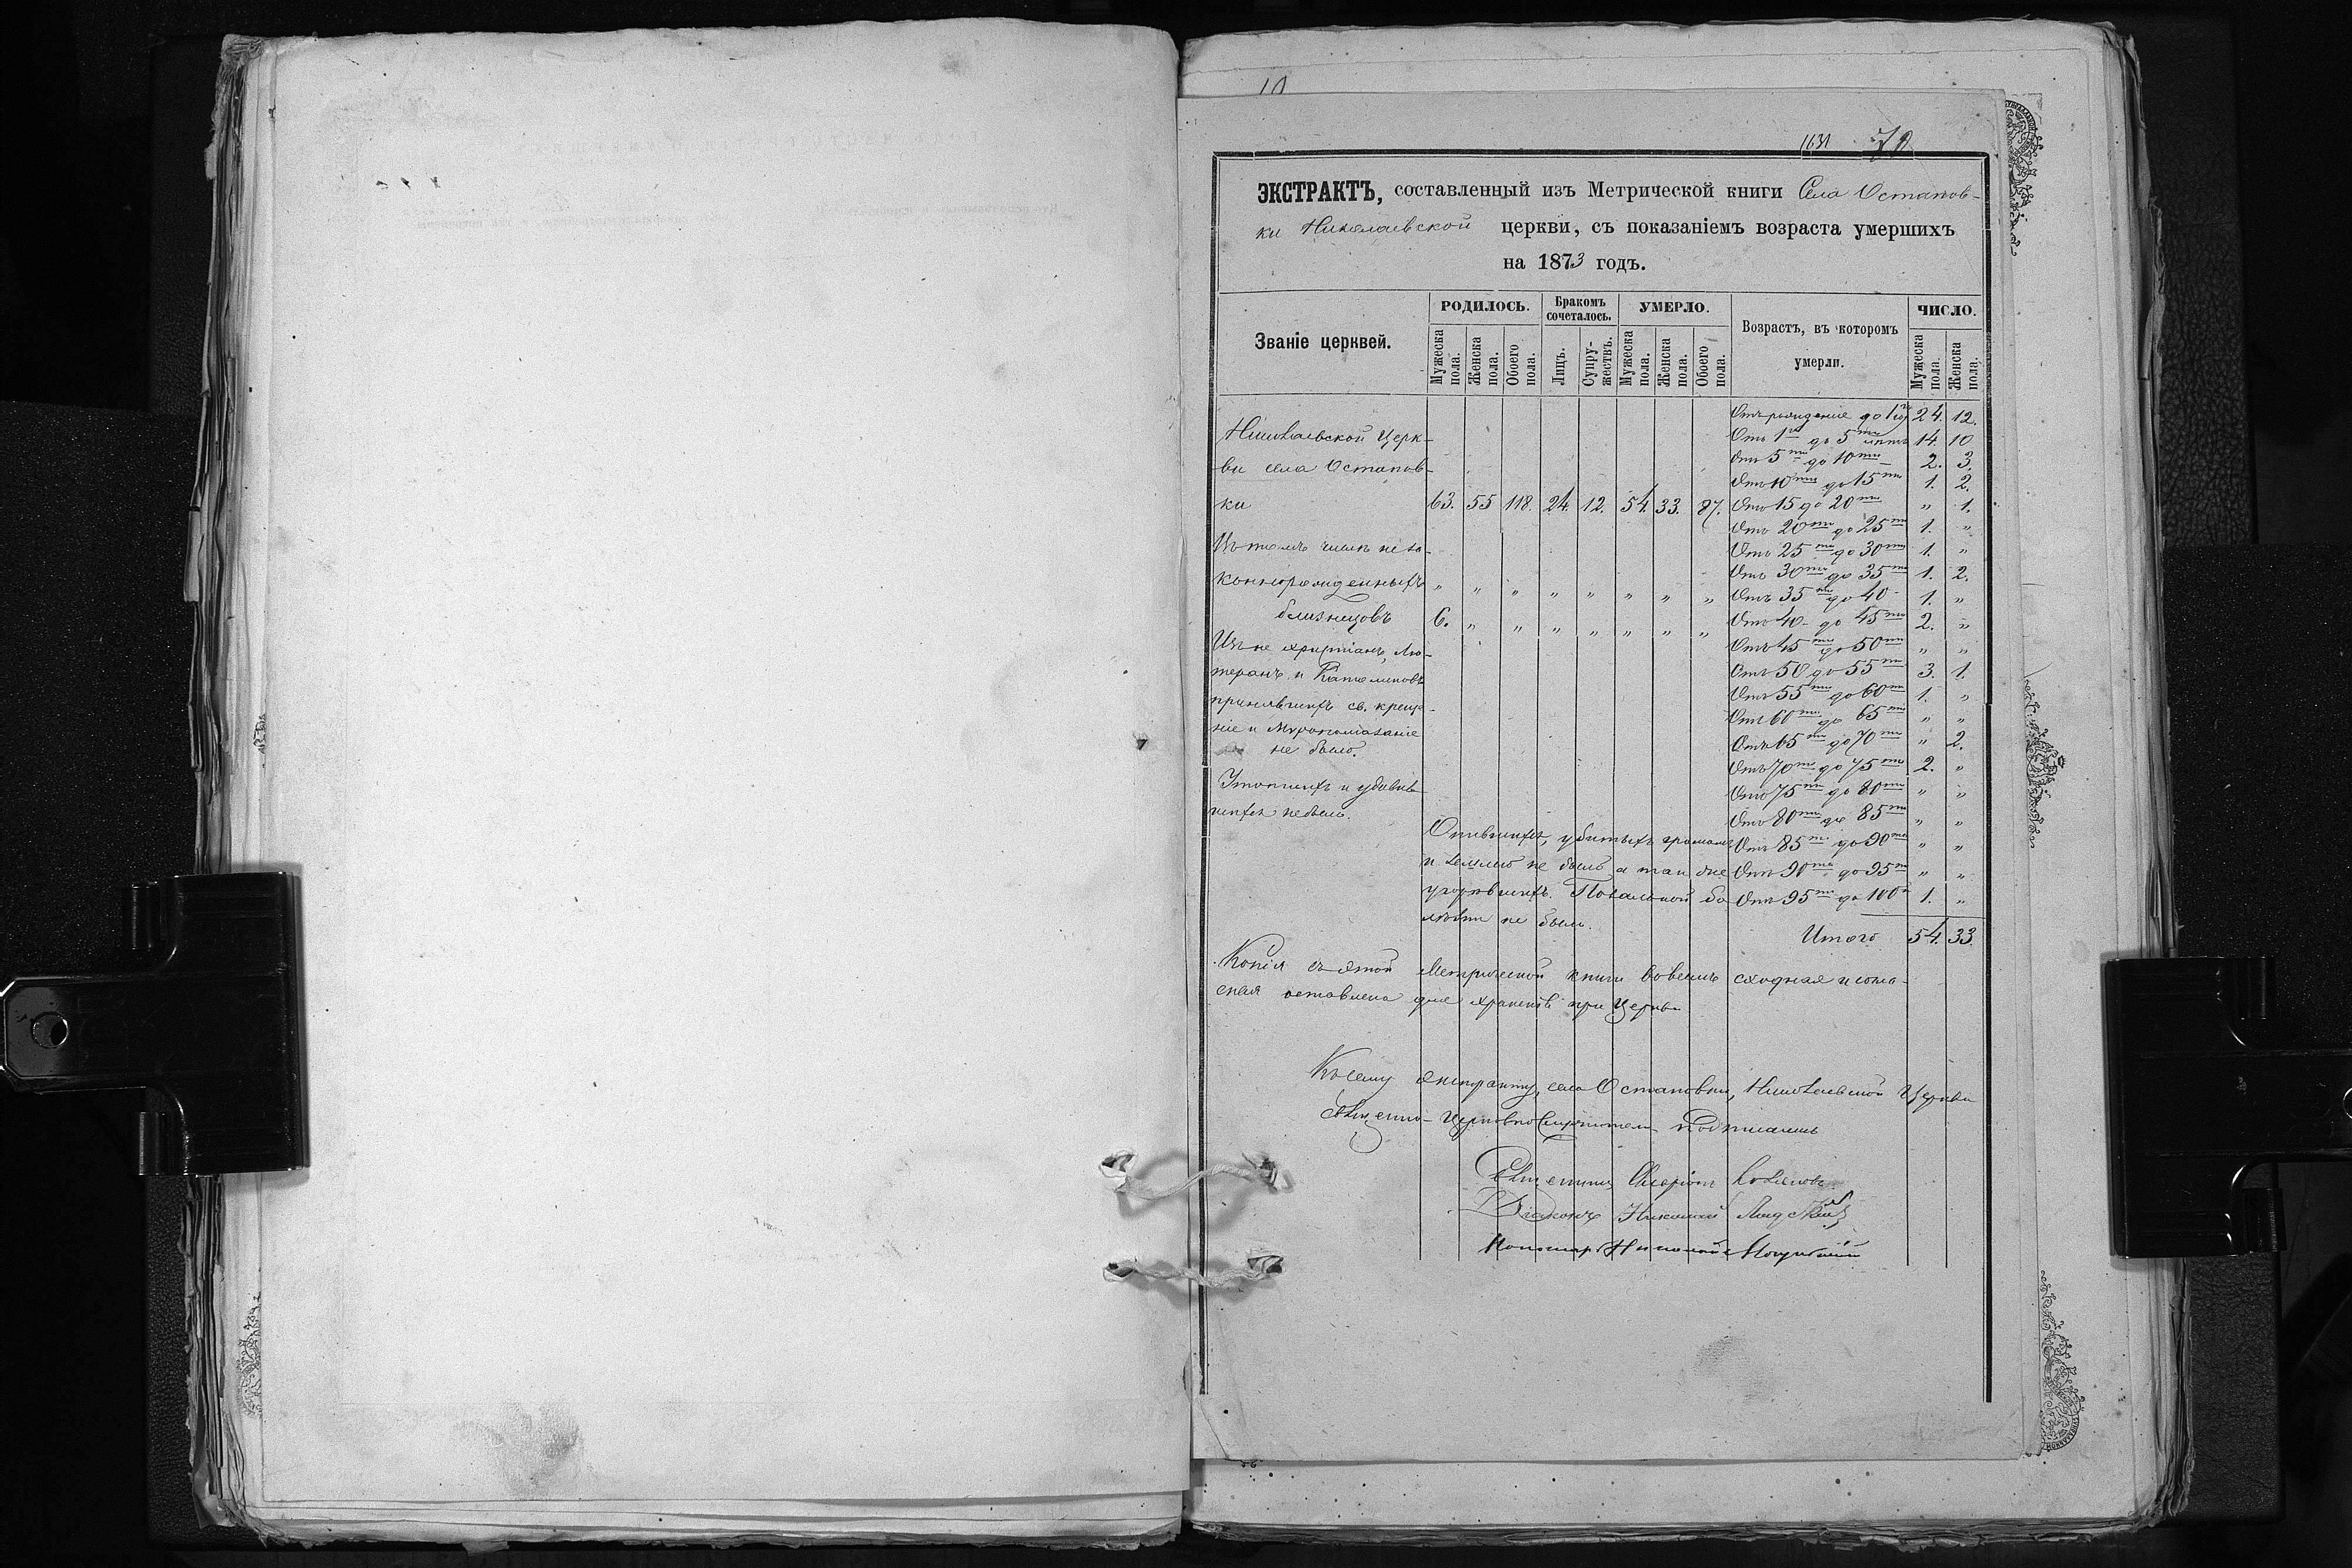 10
1631 70
ЭКСТРАКТЪ, составленный изъ Метрической книги Села Остапов-
ки Николаевской церкви, съ показаніемъ возраста умершихъ
на 1873 годъ.
Званіе церквей.
РОДИЛОСЬ.
Бракомъ сочеталось.
УМЕРЛО.
Возрастъ, въ которомъ умерли.
ЧИСЛО.
Мужеска пола. Женска пола. Обоего пола. Лицъ. Супружествъ. Мужеска пола. Женска пола. Обоего пола. Мужеска пола. Женска пола.
Николаевской Церк-
ви села Остапов-
ки 63. 55 118. 24. 12. 54. 33. 87.
Въ томъ числѣ неза-
коннорожденныхъ " " " " " " " "
близнецовъ 6. " " " " " " "
Изъ не христіанъ, Лю-
теранъ и Католиковъ
принявшихъ св. креще-
ніе и Мѵропомазаніе
не было.
Утопшихъ и удавив-
шихся небыло.
Отъ рожденіе до 1го 24. 12.
Отъ 1го до 5ти лѣтъ 14. 10
Отъ 5ти до 10ти 2. 3.
Отъ 10ти до 15ти 1. 2.
Отъ 15 до 20ти " 1.
Отъ 20ти до 25ти 1. "
Отъ 25ти до 30ти 1. "
Отъ 30ти до 35ти 1. 2.
Отъ 35ти до 40 1. "
Отъ 40 до 45ти 2. "
Отъ 45ти до 50ти " "
Отъ 50 до 55ти 3. 1.
Отъ 55ти до 60ти 1. "
Отъ 60ти до 65ти " "
Отъ 65ти до 70ти " 2.
Отъ 70ти до 75ти 2. "
Отъ 75ти до 80ти " "
Отъ 80ти до 85ти " "
Отъ 85ти до 90ти " "
Отъ 90ти до 95ти " "
Отъ 95ти до 100 1. "
Итого 54. 33.
Опившихся, убитыхъ громомъ
и землею не было а так же
угорѣвшихъ. Повальной бо
лѣзни не было.
Копія съ этой Метрической книги вовсемъ сходная и согла-
сная оставлена для храненія при Церкви
Къ сему экстракту, села Остаповки, Николаевской Церкви
Священно-Церковнослужители подписались
Священникъ
Діаконъ Николай
Пономарь Николай